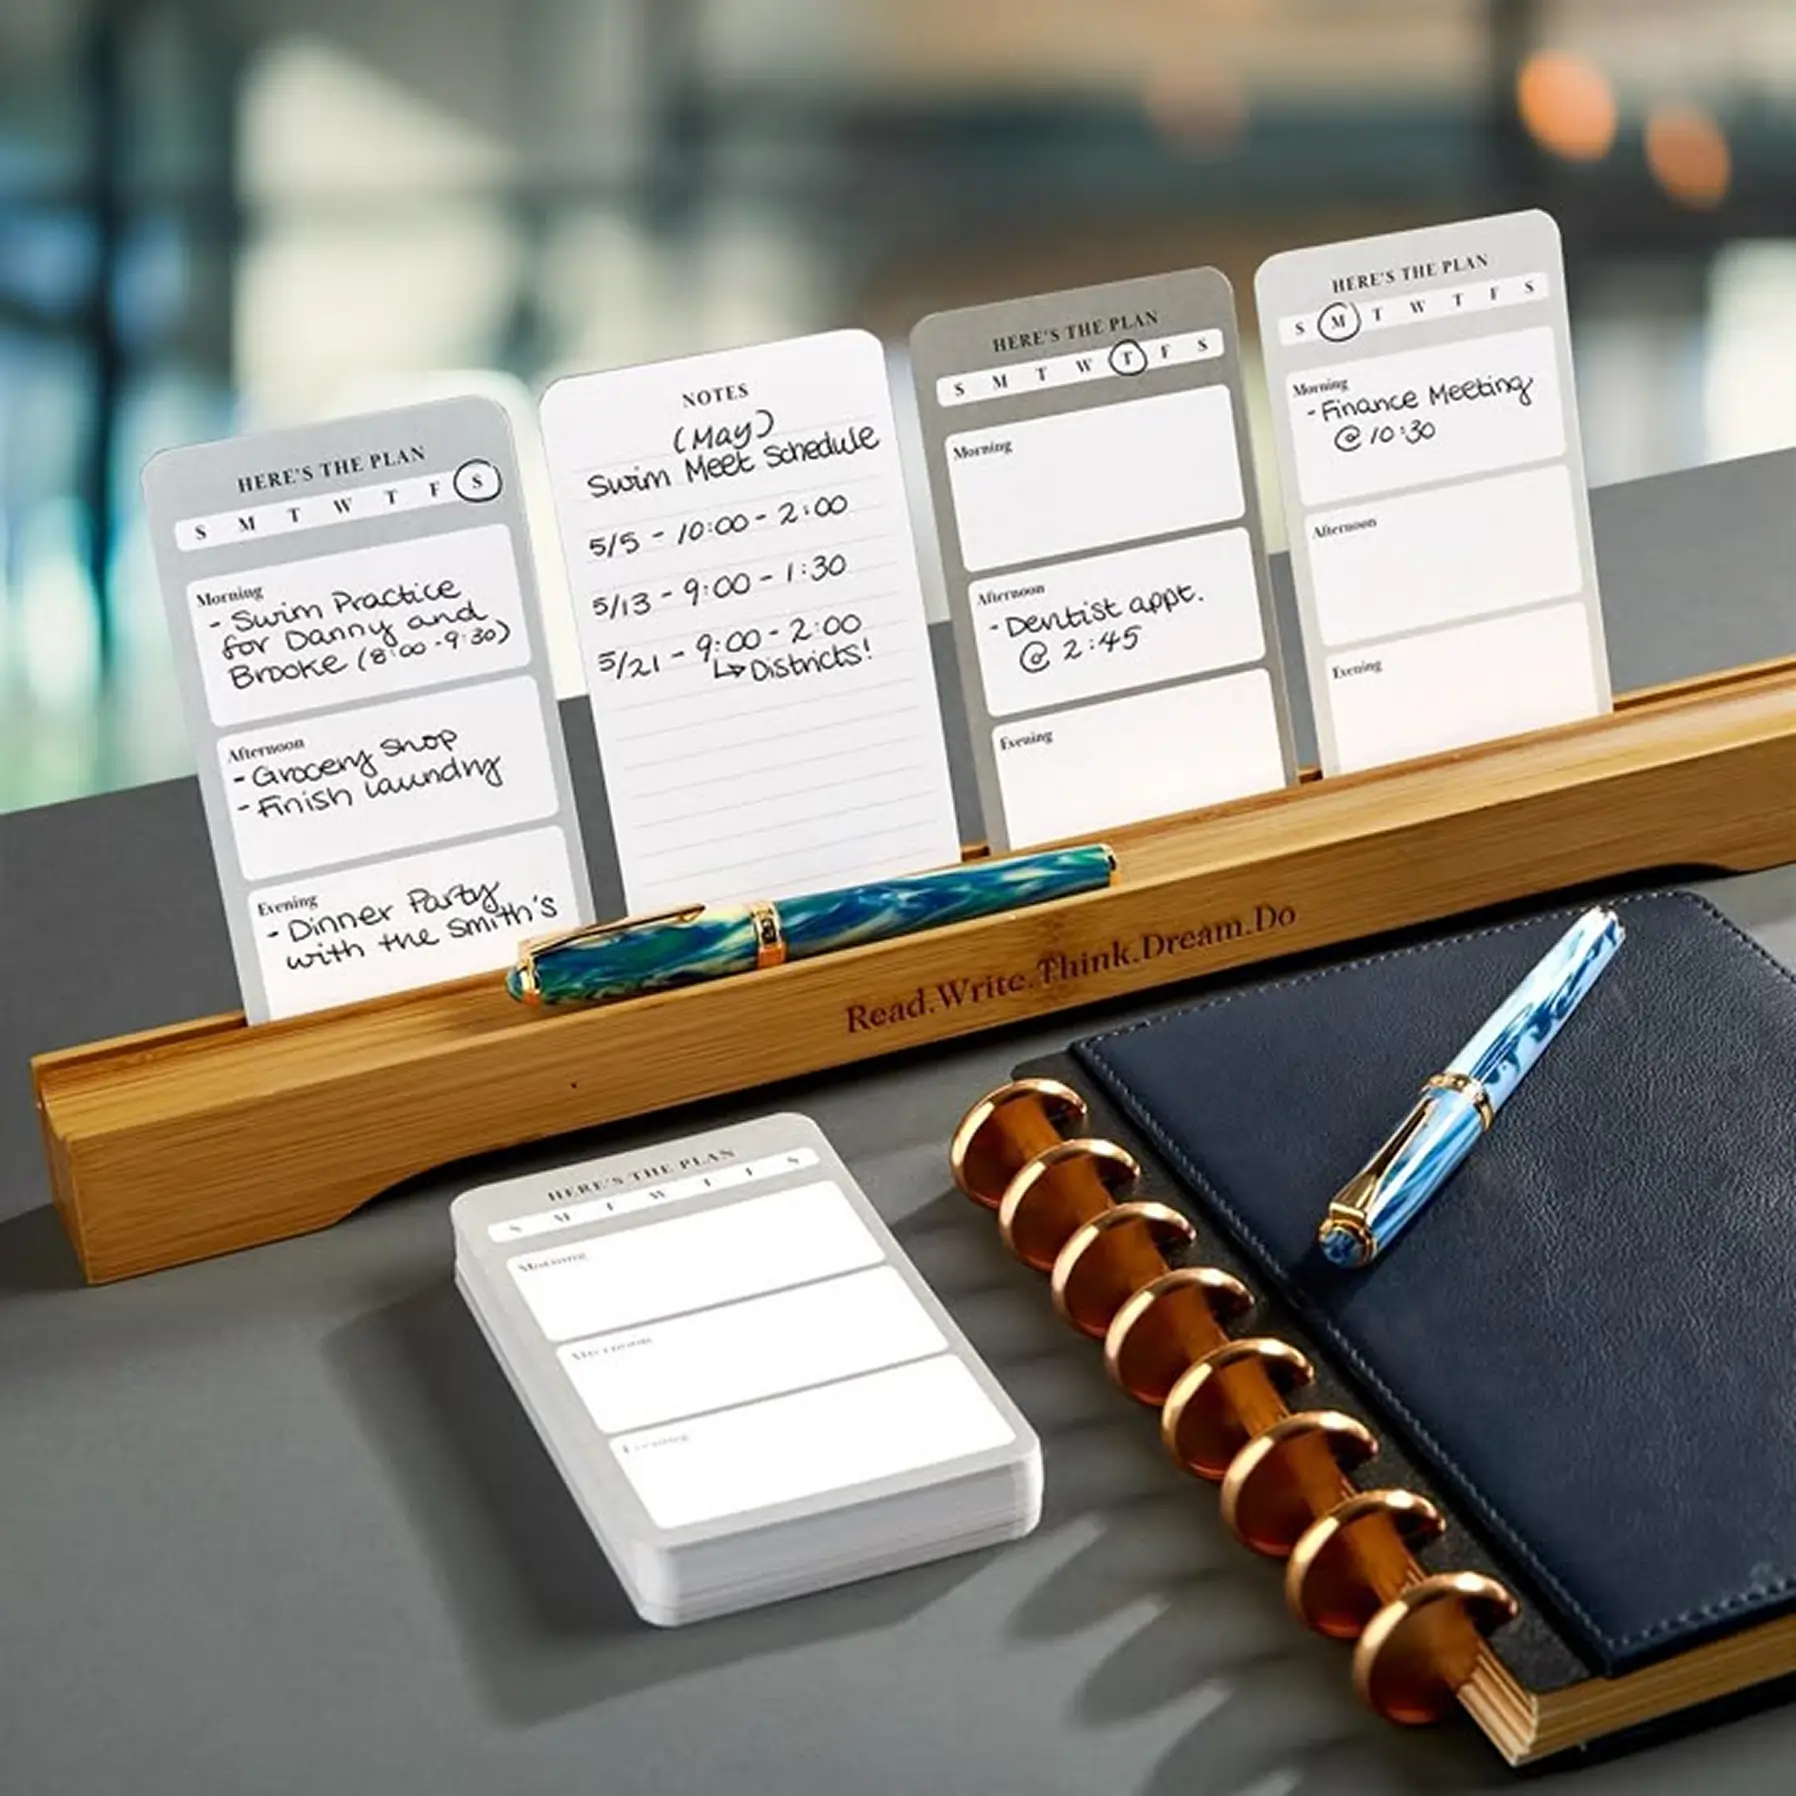 HERE'S THE PLAN
S M T W T F S
Morning
- Swim Practice
for Danny and
Brooke (8:00-9:30)
Afternoon
- Grocery Shop
- Finish laundry
Evening
- Dinner Party
with the Smith's
NOTES
(May)
Swim Meet Schedule
5/5 - 10:00 - 2:00
5/13 - 9:00 - 1:30
5/21 - 9:00 - 2:00
↳ Districts!
HERE'S THE PLAN
S M T W T F S
Morning
Afternoon
- Dentist appt.
@ 2:45
Evening
HERE'S THE PLAN
S M T W T F S
Morning
- Finance Meeting
@ 10:30
Afternoon
Evening
Read.Write.Think.Dream.Do
HERE'S THE PLAN
S M T W T F S
Morning
Afternoon
Evening